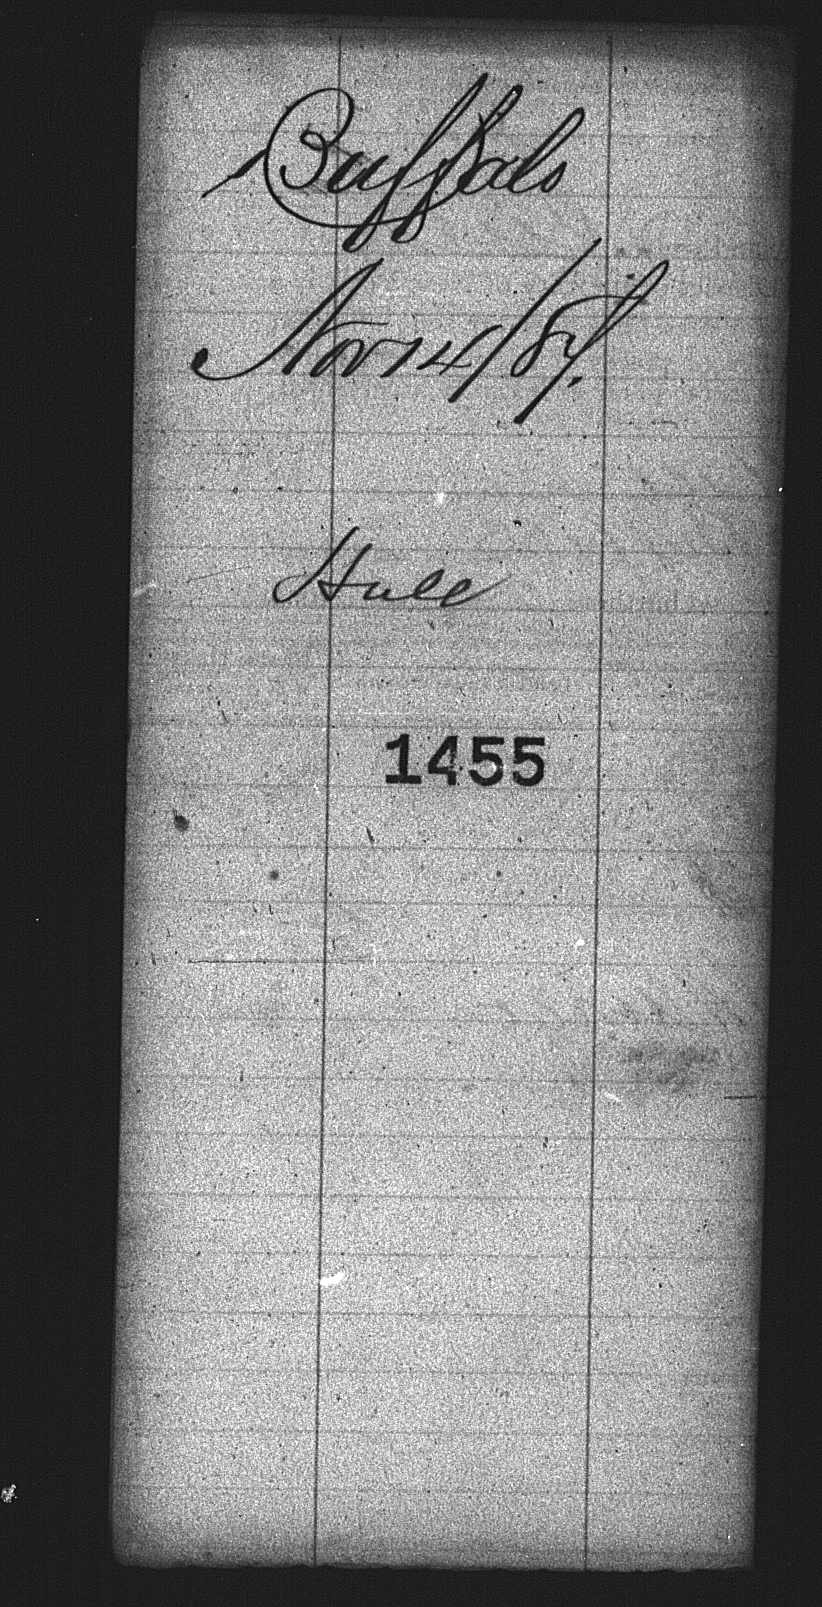 Buffalo
Nov 14/87.
Hull
1455